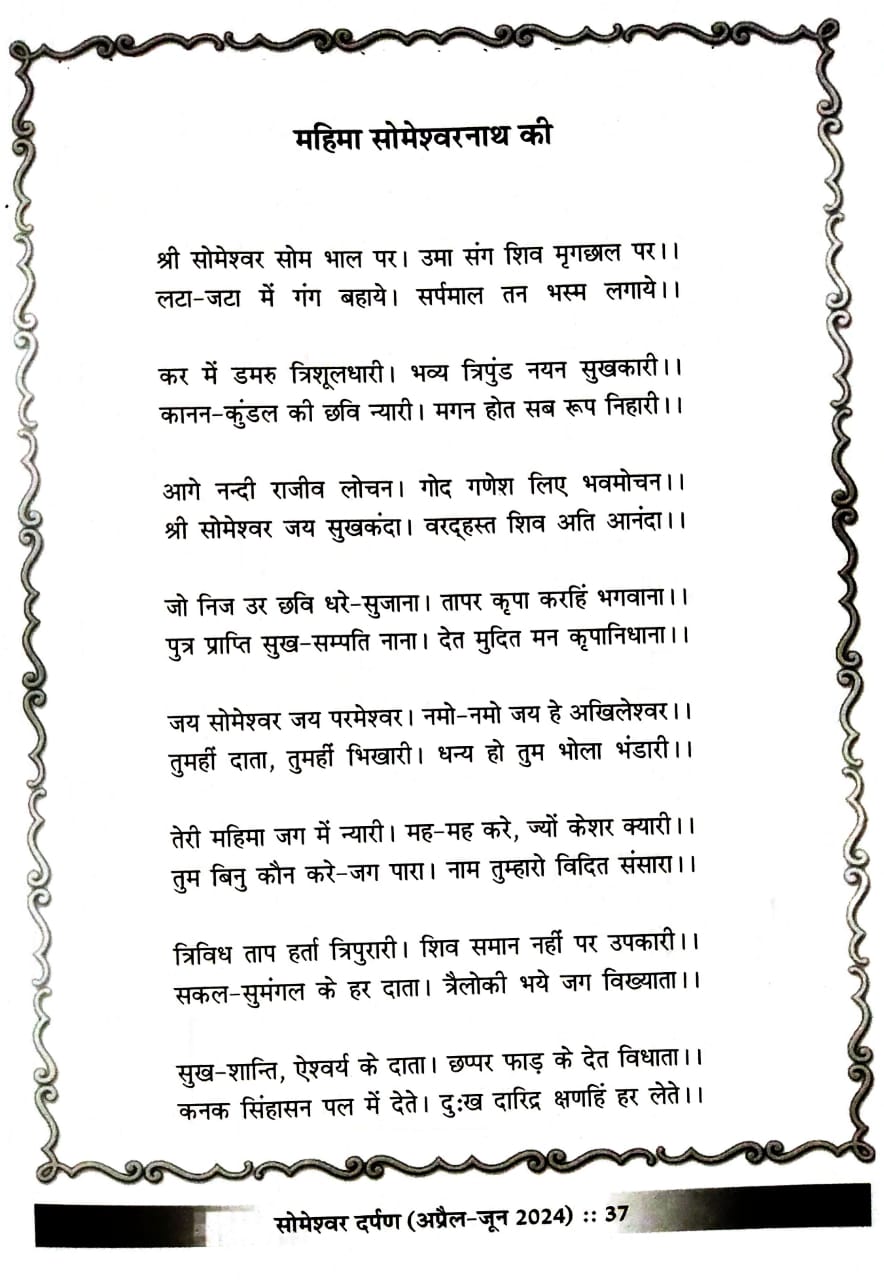 महिमा सोमेश्वरनाथ की
श्री सोमेश्वर सोम भाल पर। उमा संग शिव मृगछाल पर।।
लटा-जटा में गंग बहाये। सर्पमाल तन भस्म लगाये।।
कर में डमरु त्रिशूलधारी। भव्य त्रिपुंड नयन सुखकारी।।
कानन-कुंडल की छवि न्यारी। मगन होत सब रूप निहारी।।
आगे नन्दी राजीव लोचन। गोद गणेश लिए भवमोचन।।
श्री सोमेश्वर जय सुखकंदा। वरद्हस्त शिव अति आनंदा।।
जो निज उर छवि धरे-सुजाना। तापर कृपा करहिं भगवाना।।
पुत्र प्राप्ति सुख-सम्पति नाना। देत मुदित मन कृपानिधाना।।
जय सोमेश्वर जय परमेश्वर। नमो-नमो जय हे अखिलेश्वर।।
तुमहीं दाता, तुमहीं भिखारी। धन्य हो तुम भोला भंडारी।।
तेरी महिमा जग में न्यारी। मह-मह करे, ज्यों केशर क्यारी।।
तुम बिनु कौन करे-जग पारा। नाम तुम्हारो विदित संसारा।।
त्रिविध ताप हर्ता त्रिपुरारी। शिव समान नहीं पर उपकारी।।
सकल-सुमंगल के हर दाता। त्रैलोकी भये जग विख्याता।।
सुख-शान्ति, ऐश्वर्य के दाता। छप्पर फाड़ के देत विधाता।।
कनक सिंहासन पल में देते। दुःख दारिद्र क्षणहिं हर लेते।।
सोमेश्वर दर्पण (अप्रैल-जून 2024) :: 37